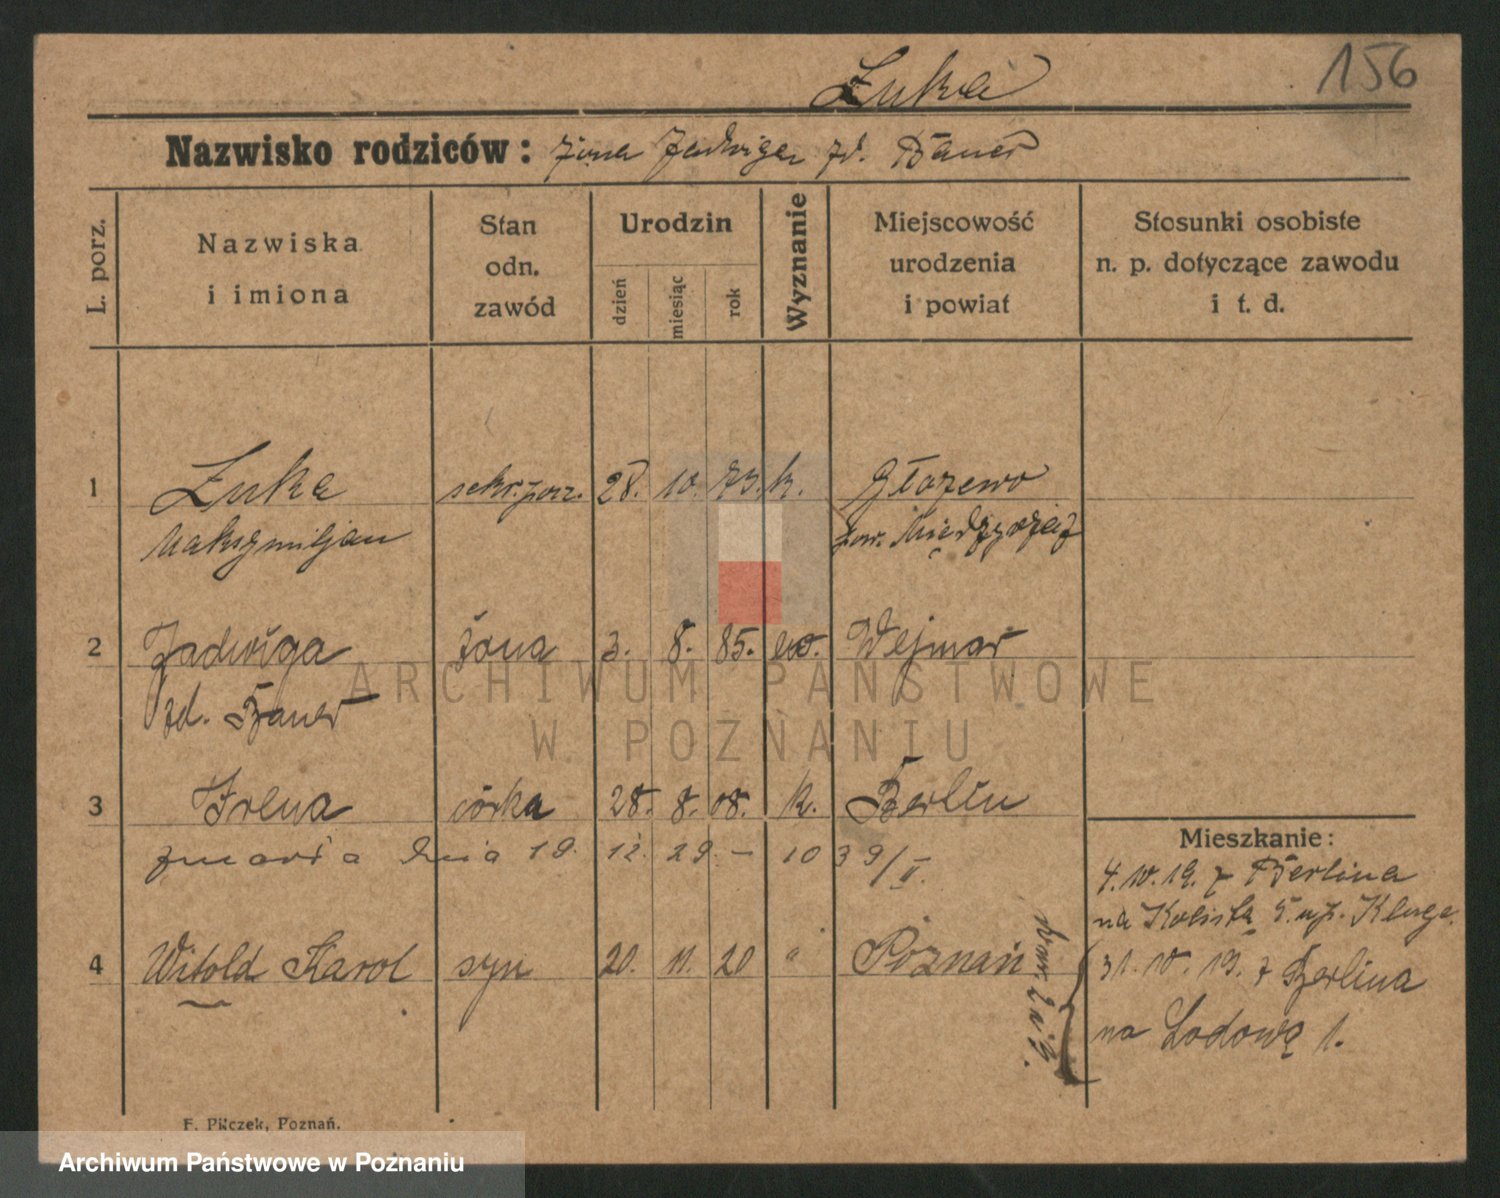 156
Żuka
Nazwisko rodziców: żona Jadwiga zd. Bauer
L. porz.
Nazwiska i imiona
Stan odn. zawód
Urodzin
dzień miesiąc rok
Wyznanie
Miejscowość urodzenia i powiat
Stosunki osobiste n. p. dotyczące zawodu i t. d.
1 Żuka sekr. 28. 10. 73. k. Głożewo
Maksymiljan pow. Międzyrzecz
2 Jadwiga żona 3. 8. 85. ew. Wejmar
zd. Bauer
3 Irena córka 28. 8. 08. k. Berlin
zmarła dnia 19. 12. 29. – 1039/II.
4 Witold Karol syn 20. 11. 20 " Poznań
Mieszkanie:
4. 10. 19. z Berlina
na Kolista 5. u p. Kluge.
31. 10. 19. z Berlina
na Lodową 1.
F. Pilczek, Poznań.
ARCHIWUM PAŃSTWOWE
W POZNANIU
Archiwum Państwowe w Poznaniu